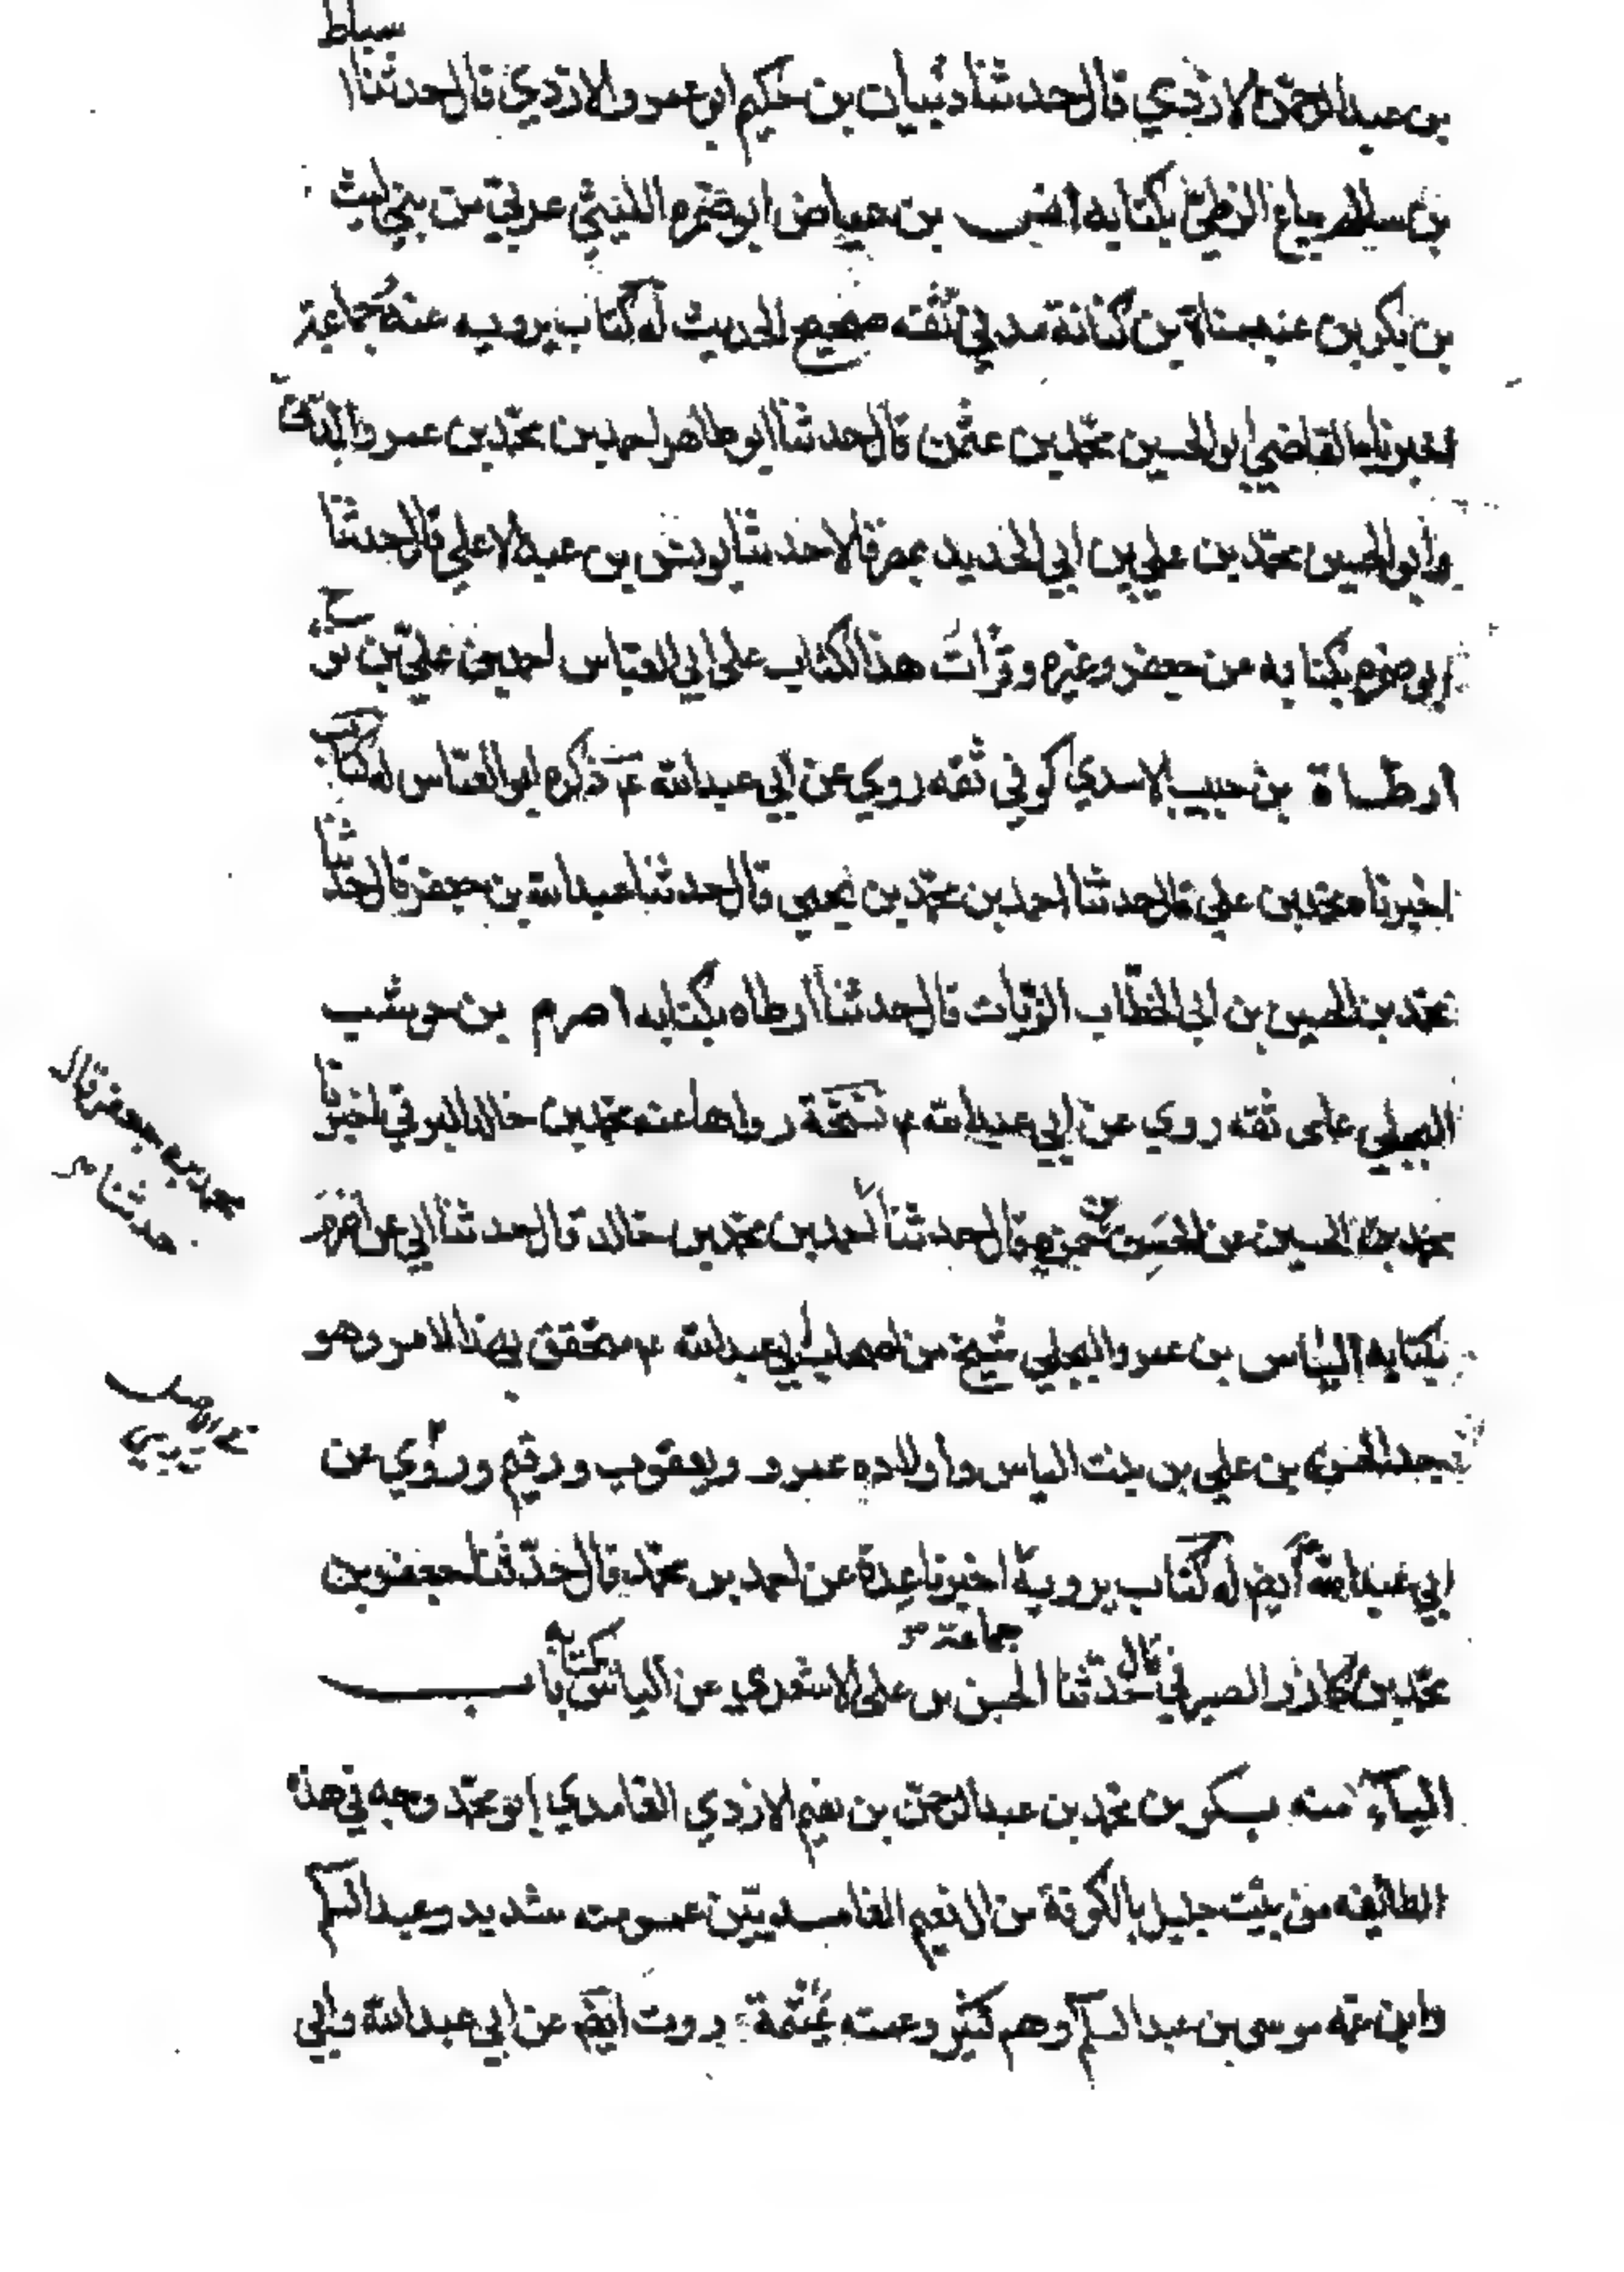 بن عبد الرحمن الازدي قال حدثنا ذبيان بن حكيم ابو عمرو الازدي قال حدثنا اسباط
بن سالم بياع الزطي بكتابه انس بن عياض ابو ضمرة الليثي عربي من بني ليث
بن بكر بن عبد مناة بن كنانة مدني ثقه صحيح الحديث له كتاب يرويه عنه جماعة
اخبرنا القاضي ابو الحسين محمد بن عثمن قال حدثنا ابو طاهر احمد بن محمد بن عمرو المدني
وابو الحسين محمد بن علي بن ابي الحديد بمصر قالا حدثنا يونس بن عبد الاعلى قال حدثنا
ابو ضمرة بكتابه عن جعفر وغيره وقرات هذا الكتاب على ابي العباس احمد بن علي بن نوح
ارطاة بن حبيب الاسدي كوفي ثقه روى عن ابي عبد الله ع ذكره ابو العباس له كتاب
اخبرناه محمد بن علي قال حدثنا احمد بن محمد بن يحيى قال حدثنا عبد الله بن جعفر قال حدثنا
محمد بن الحسين بن ابي الخطاب الزيات قال حدثنا ارطاه بكتابه اصرم بن حوشب
البجلي عامى ثقه روى عن ابي عبد الله ع نسخة رواها عنه محمد بن خالد البرقي اخبرنا
محمد بن جعفر قال
حدثنا
محمد بن الحسين عن الحسن بن قال حدثنا احمد بن محمد بن خالد قال حدثنا ابي عن اصرم
بكتابه الياس بن عمرو البجلي شيخ من اصحاب ابي عبد الله ع متحقق بهذا الامر وهو
جد الحسن بن علي بن بنت الياس واولاده عمرو ويعقوب ورقيم وروي عن
ابي عبد الله ايض له كتاب يرويه اخبرنا عدة عن احمد بن محمد قال حدثنا جعفر بن
جماعة
محمد بن الصيرفي قال حدثنا الحسن بن علي الاشعري عن الياس بكتابه باب
الباء منه بكر بن محمد بن عبد الرحمن بن نعيم الازدي الغامدي ابو محمد وجه في هذه
الطائفه من بيت جليل بالكوفة من ال نعيم الغامديين عمومته شديد وعبد السلم
وابن عمه موسى بن عبد السلم وهم كثير وعمته غنيمة روت ايض عن ابي عبد الله وابي